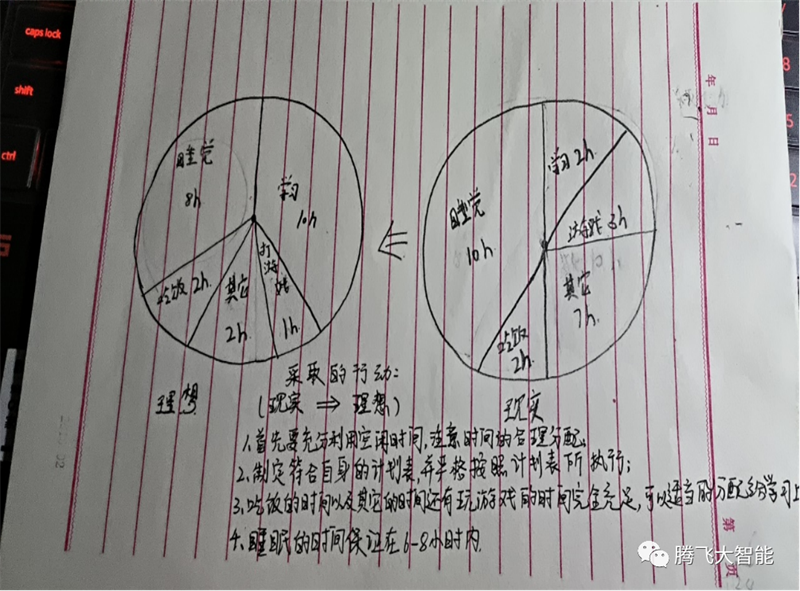 caps lock
shift
ctrl
年 月 日
睡觉
8h
学习
10h
打游戏
1h
其它
2h
吃饭 2h
理想
睡觉
10h
学习 2h
游戏 3h
其它
7h
吃饭
2h
现实
采取的行动:
(现实 ⇒ 理想)
1.首先要充分利用空闲时间,注意时间的合理分配.
2.制定符合自身的计划表,并严格按照计划表所执行;
3.吃饭的时间以及其它的时间还有玩游戏的时间完全充足,可以适当的分配给学习上
4.睡眠的时间保证在6-8小时内.
第 页
腾飞大智能